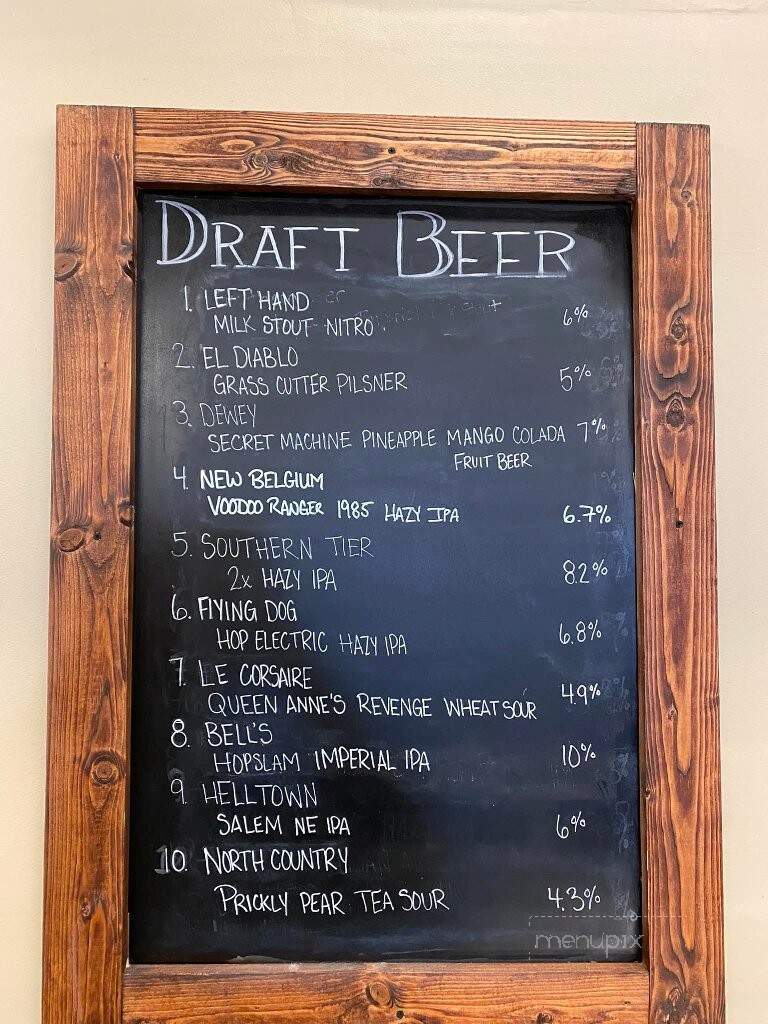 DRAFT BEER
1. LEFT HAND
MILK STOUT NITRO 6%
2. EL DIABLO
GRASS CUTTER PILSNER 5%
3. DEWEY
SECRET MACHINE PINEAPPLE MANGO COLADA 7%
FRUIT BEER
4. NEW BELGIUM
VOODOO RANGER 1985 HAZY IPA 6.7%
5. SOUTHERN TIER
2x HAZY IPA 8.2%
6. FLYING DOG
HOP ELECTRIC HAZY IPA 6.8%
7. LE CORSAIRE
QUEEN ANNE'S REVENGE WHEAT SOUR 4.9%
8. BELL'S
HOPSLAM IMPERIAL IPA 10%
9. HELLTOWN
SALEM NE IPA 6%
10. NORTH COUNTRY
PRICKLY PEAR TEA SOUR 4.3%
menupix